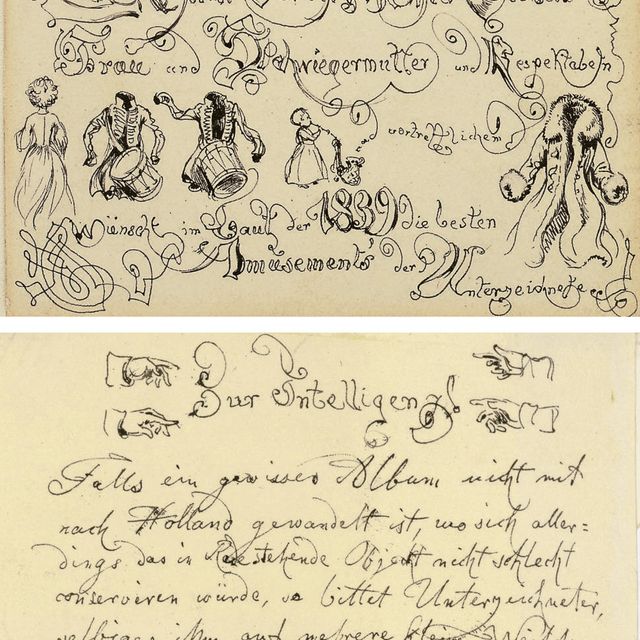 Frau und Schwiegermutter und Respektabeln
und vortrefflichem
wünscht im Lauf der 1839 die besten
Amüsements der Unterzeichnete
Zur Intelligenz!
Falls ein gewisses Album nicht mit
nach Holland gewandelt ist, wo sich aller=
dings das in Rede stehende Object nicht schlecht
conserviren würde, so bittet Unterzeichneter,
selbiges ihm auf mehrere